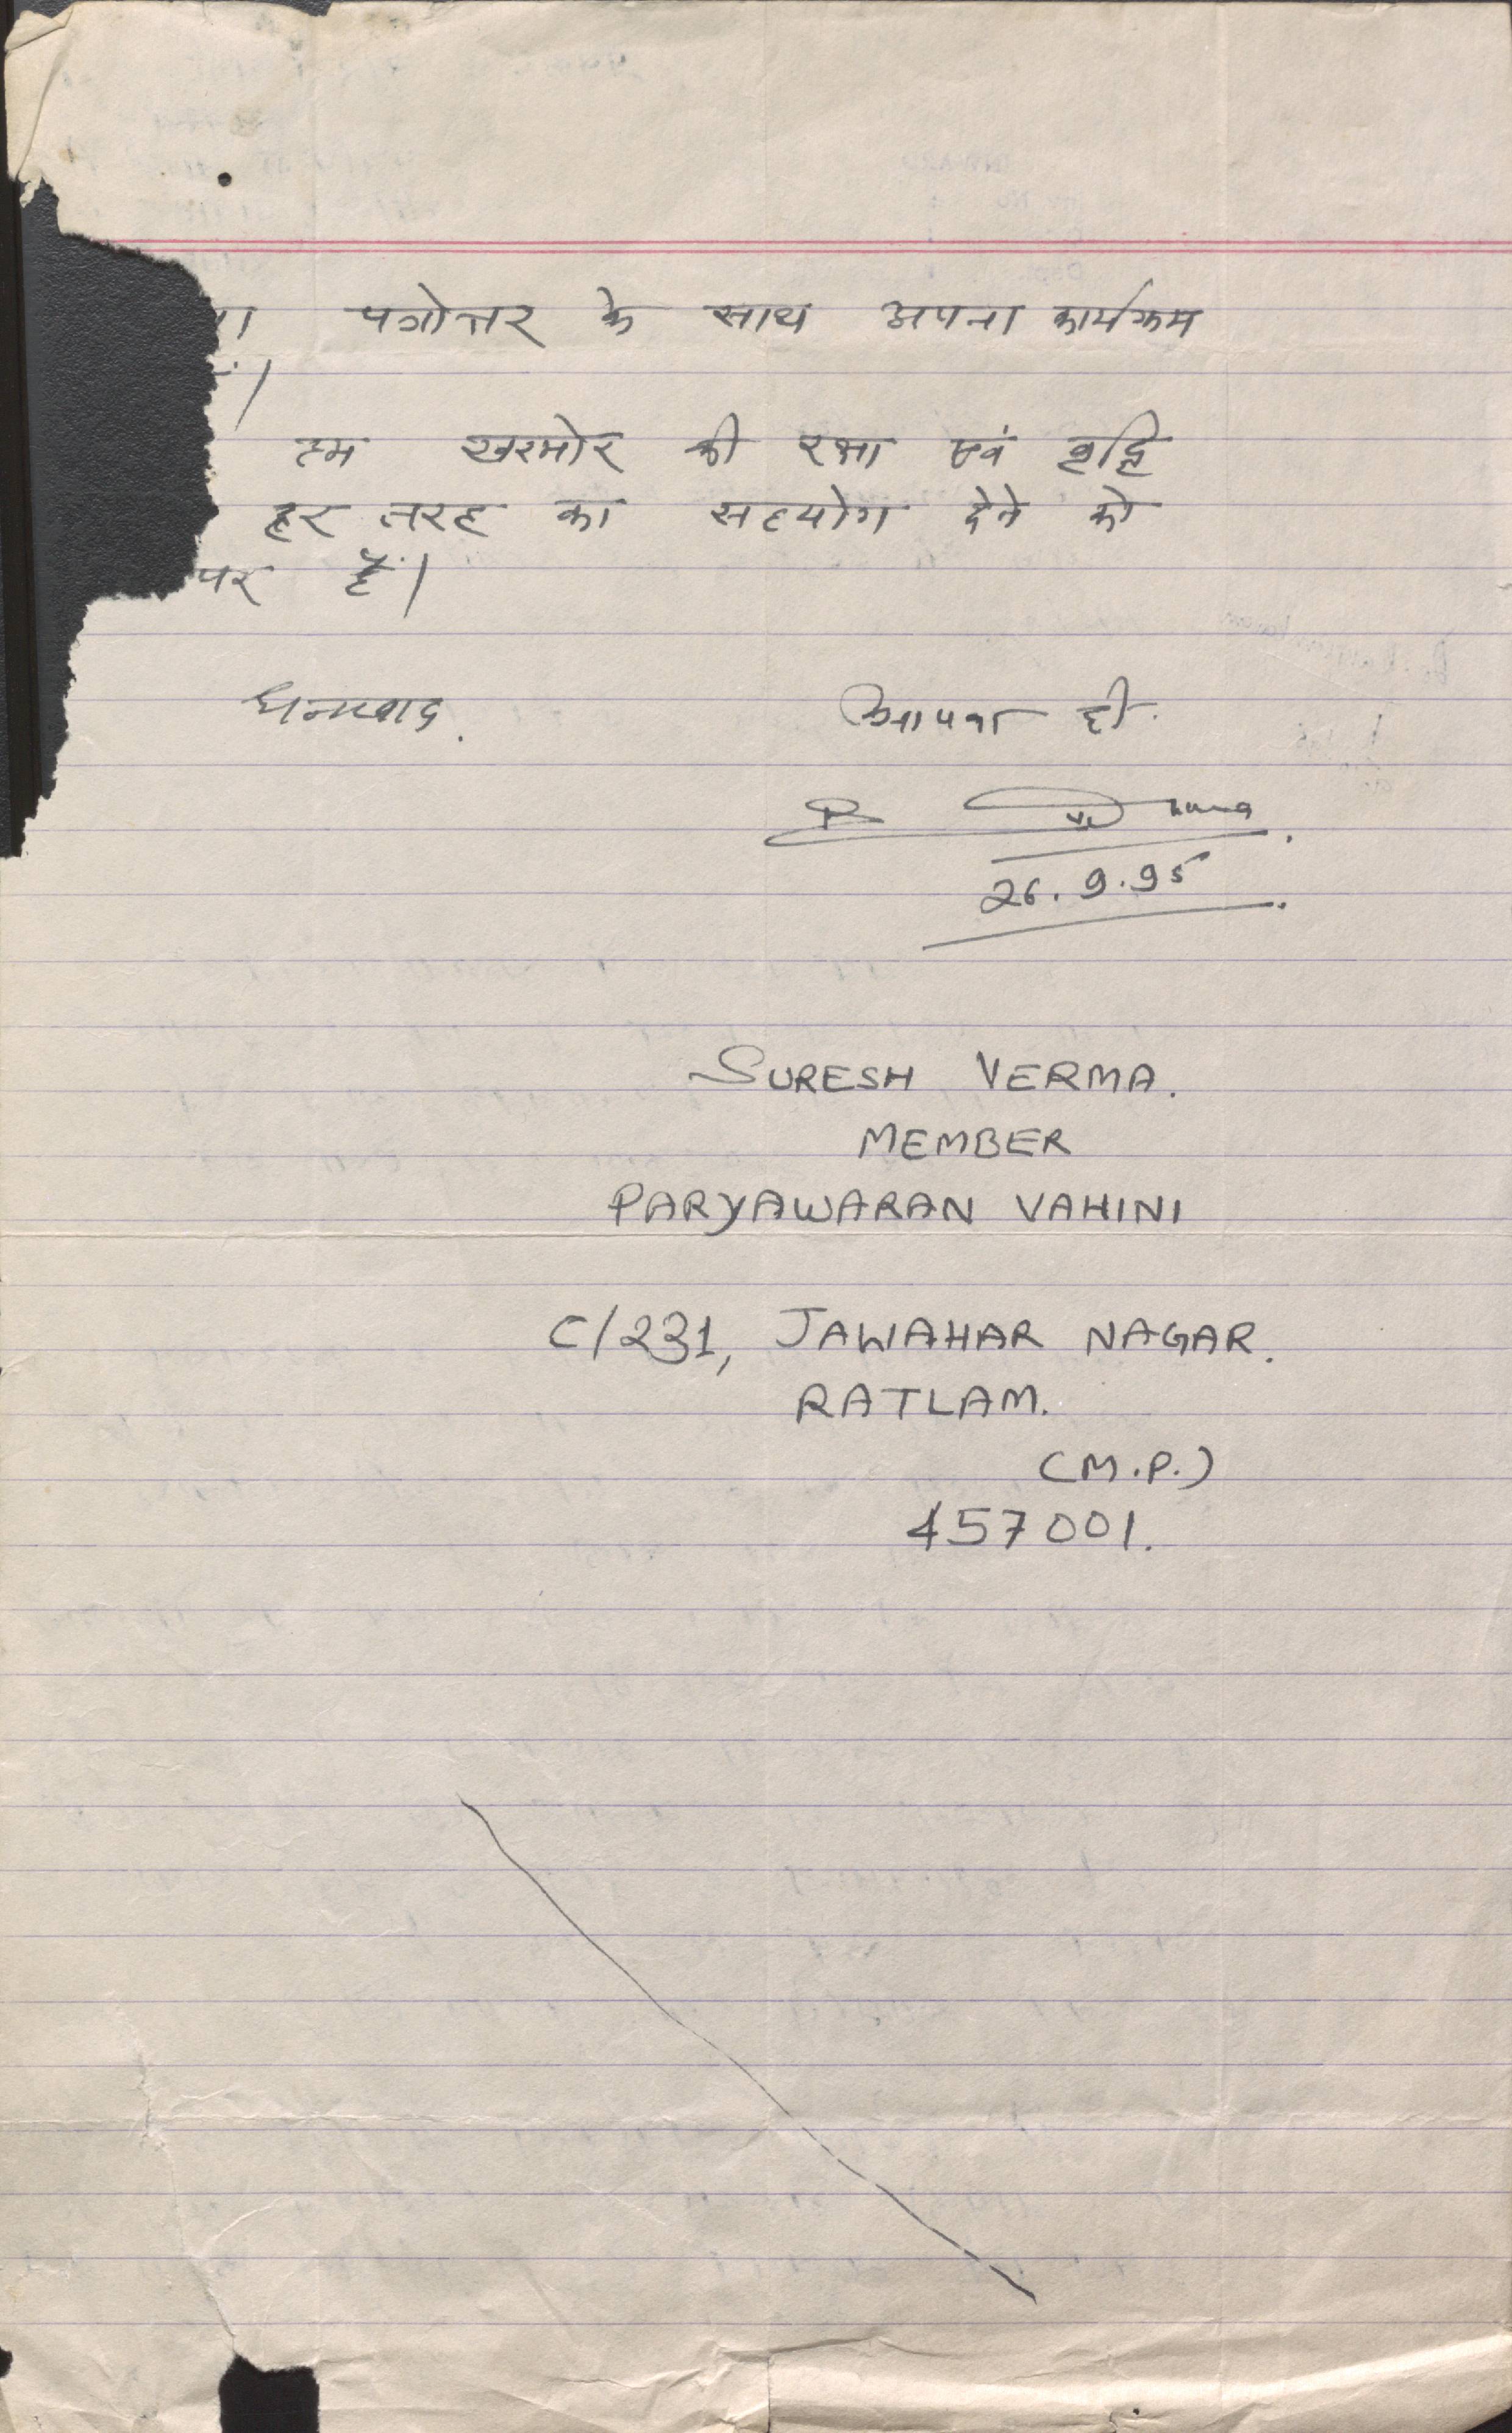 पत्रोत्तर के साथ अपना कार्यक्रम
हम खरमोर की रक्षा एवं वृद्धि
हर तरह का सहयोग देने को
पर हैं।
धन्यवाद.
आपका ही.
26.9.95
SURESH VERMA.
MEMBER
PARYAWARAN VAHINI
C/231, JAWAHAR NAGAR.
RATLAM.
(M.P.)
457001.